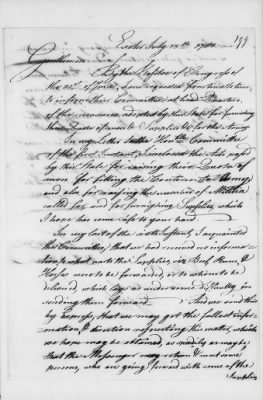 199
Exeter July 15th 1780
Gentlemen
By the Resolve of Congress of
the 22d of June, I am requested from time to time,
to inform their Committee, at Head Quarters,
of the measures adopted by this State for furnishing
their Quotas of men & Supplies &c for the Army
In my letter to the Honble Committee
of the first Instant I inclosed the Acts passed
by this State for raising their Quota of
men for filling the Continental Army
and also for raising the number of Militia
called for, and for furnishing Supplies, which
I hope has come safe to your hand.
In my last of the Instant, I acquainted
the Committee, that we had received no informa-
tion to what parts the Supplies, viz Beef, Rum, &
Horses were to be forwarded, or to whom to be
delivered, which lays us under some difficulty in
sending them forward. And we send this
by Express, that we may get the fullest infor-
mation, & direction respecting this matter, which
we hope may be obtained, as speedily as may be,
that the Messenger may return & meet some
persons, who are going forward with some of the
Supplies